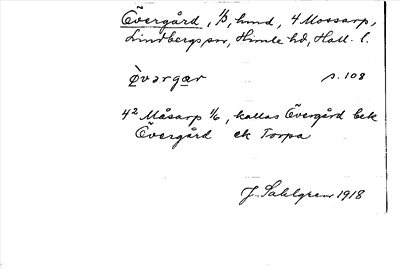 Övergård, 1/3, hmd, 4 Mossarp,
Lindbergs sn, Himle hd, Hall. l.
övərgær s. 108
4² Måsarp 1/6, kallas Övergård bek
Övergård ek Torpa
J. Sahlgren 1918